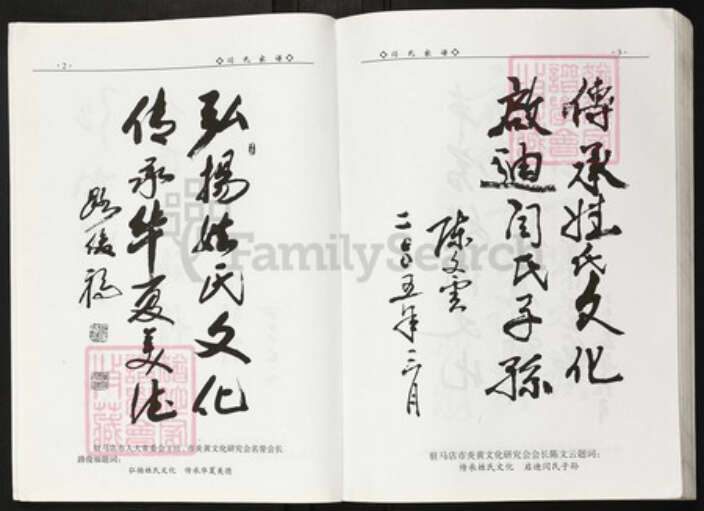 ·2· ◇闫氏家谱◇
弘揚姓氏文化
传承华夏美德
路俊福
驻马店市人大常委会主任、市炎黄文化研究会名誉会长
路俊福题词:
弘扬姓氏文化 传承华夏美德
◇闫氏家谱◇ ·3·
傳承姓氏文化
啟迪闫氏子孫
陈文云
二〇〇五年三月
驻马店市炎黄文化研究会会长陈文云题词:
传承姓氏文化 启迪闫氏子孙
FamilySearch